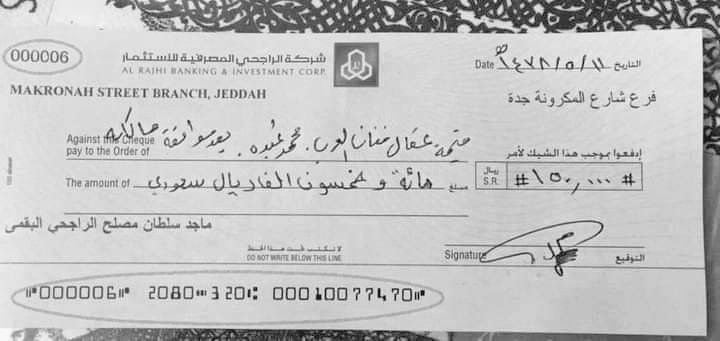 000006
شركة الراجحي المصرفية للاستثمار
AL RAJHI BANKING & INVESTMENT CORP.
Date ١٤٢٨/٥/١١ هـ التاريخ
MAKRONAH STREET BRANCH, JEDDAH
فرع شارع المكرونة جدة
Against this Cheque
pay to the Order of
عقال فنان العرب. محمد عبده. بعد موافقة مالكه
إدفعوا بموجب هذا الشيك لأمر
The amount of مائة و خمسون الف ريال سعودي مبلغ
ريال
S.R. #١٥٠,٠٠٠#
ماجد سلطان مصلح الراجحي البقمى
لا تكتب تحت هذا الخط
DO NOT WRITE BELOW THIS LINE
Signature التوقيع
⑈000006⑈ 2080⑉320⑆ 00010077470⑈